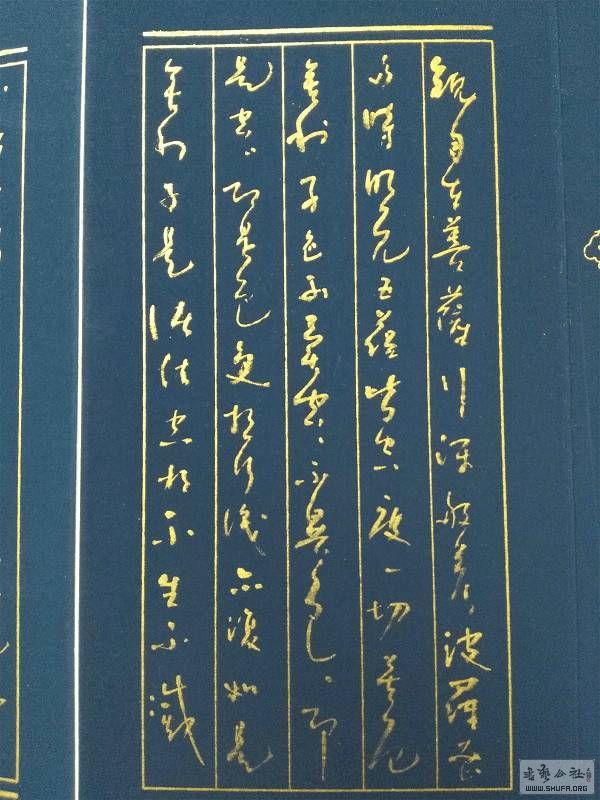 観自在菩薩行深般若波羅蜜
多時照見五蘊皆空度一切苦厄
舍利子色不異空〻不異色〻即
是空〻即是色受想行識亦復如是
舍利子是諸法空相不生不滅
書艺公社
WWW.SHUFA.ORG